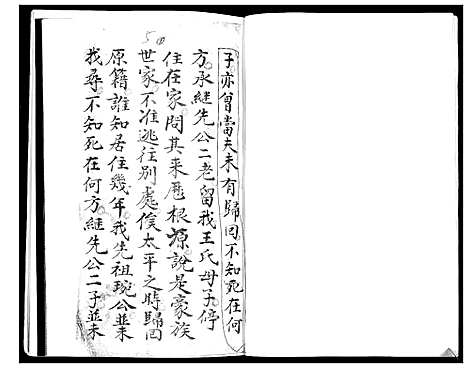 子亦曾當夫未有歸回不知死在何
方承継先公二老留我王氏母子停
住在家問其来歷根源說是豪族
世家不准逃往别處俟太平之時歸回
原籍誰知居住幾年我先祖琬公並来
找尋不知死在何方継先公二子並未